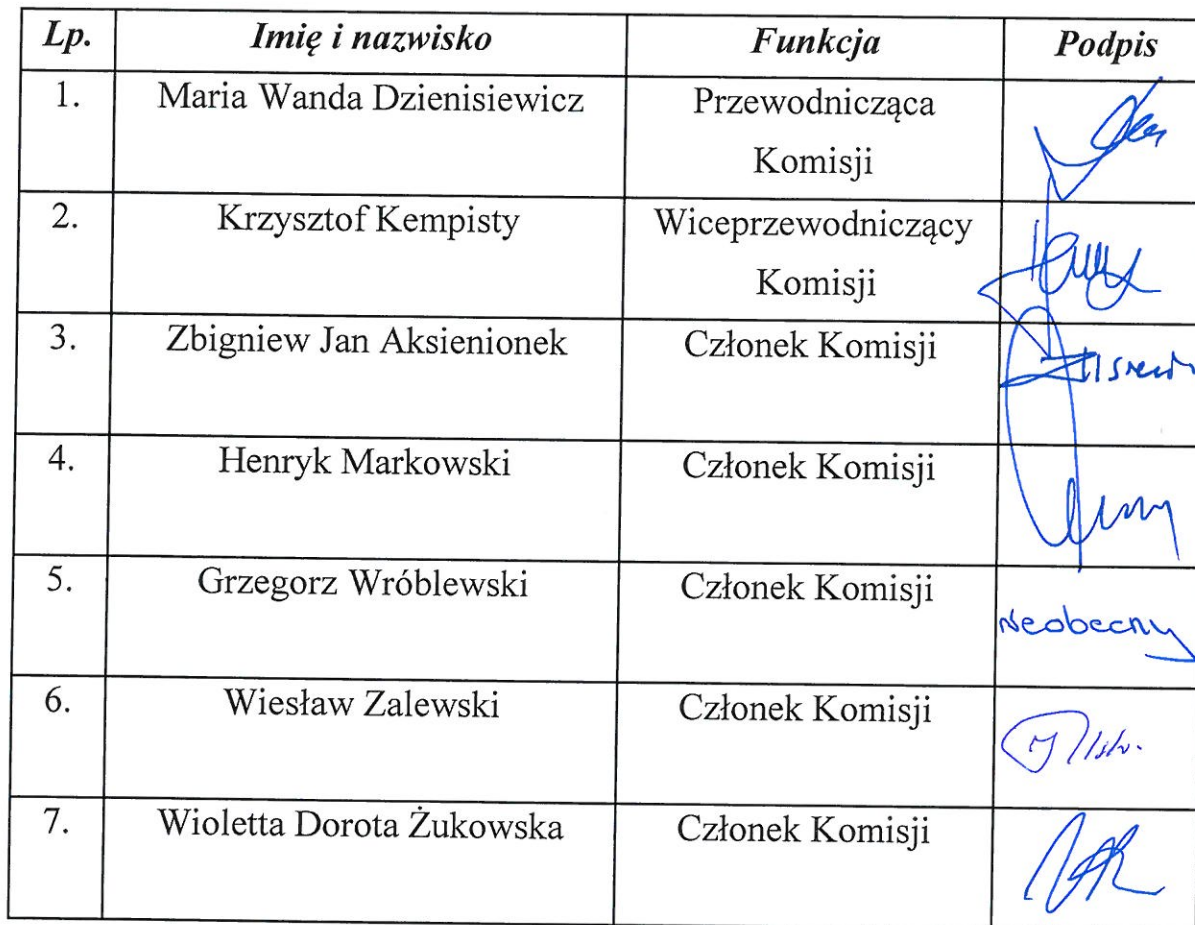 Lp. Imię i nazwisko Funkcja Podpis
1. Maria Wanda Dzienisiewicz Przewodnicząca
Komisji
2. Krzysztof Kempisty Wiceprzewodniczący
Komisji
3. Zbigniew Jan Aksienionek Członek Komisji
4. Henryk Markowski Członek Komisji
5. Grzegorz Wróblewski Członek Komisji
Nieobecny
6. Wiesław Zalewski Członek Komisji
7. Wioletta Dorota Żukowska Członek Komisji